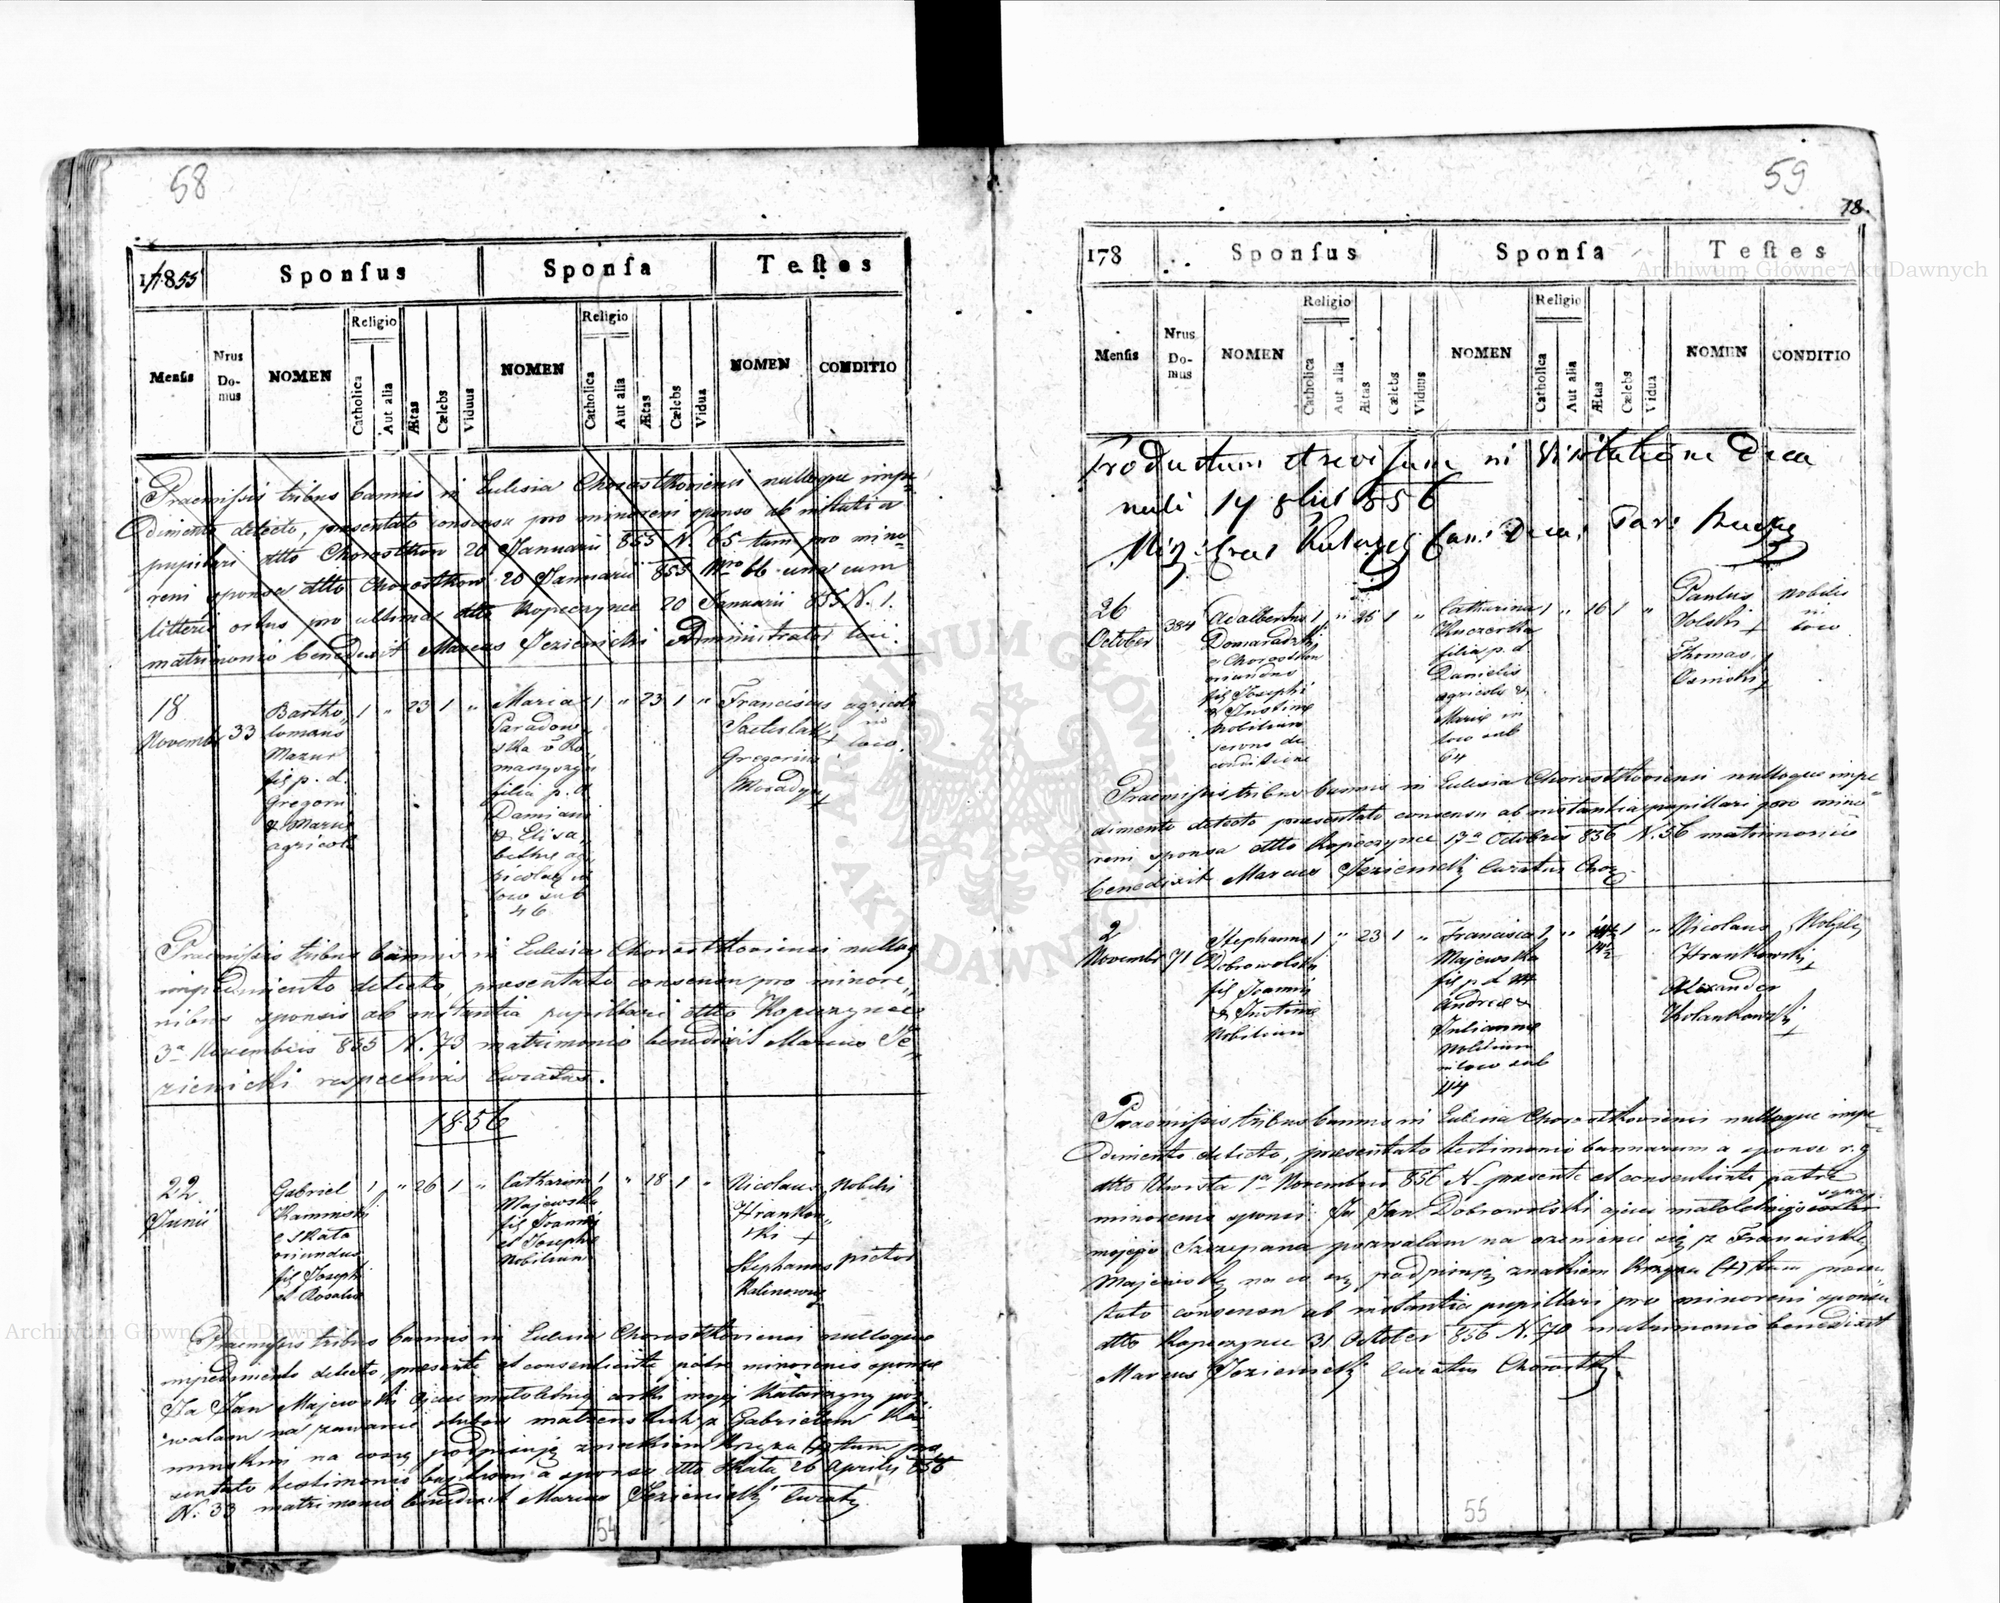 58
17855
Sponsus
Sponsa
Testes
Mensis
Nrus Do-mus
NOMEN
Religio
Catholica
Aut alia
Ætas
Cælebs
Viduus
NOMEN
Religio
Catholica
Aut alia
Ætas
Cælebs
Vidua
NOMEN
CONDITIO
Praemissis tribus bannis in Eclesia Chorostkoviensi nulloque impe-
dimento detecto, praesentato consensu pro minoreni sponso ab instatia
pupilari dtto Chorostkow 20 Januarii 855 N. 65 tum pro mino-
reni sponsa dtto Chorostkow 20 Januarii 855 Nro 66 una cum
litteris pro ultima dtto Kopeczynce 20 Januarii 855 N. 1.
matrimonio benedixit Marcus Jezienicki Administrator loci.
18
Novembr
33
Bartho
lomaus
Mazur
fil p. d.
Gregorii
& Maria
agricola
1 " 23 1 "
Maria
Paradow
ska v Ro
filia p. d
Damiani
& Elisa
bethae ag
ricolae in
loco sub
46
1 " 23 1 "
Franciscus
Gregorius
+
agricola
in
loco.
Praemissis tribus bannis in Eclesia Chorostkoviensi nulloq
impedimento detecto, praesentato consensu pro minore
nibus sponsis ab instantia pupillari dtto Kopeczynce
3a Novembris 855 N. 73 matrimonio benedixit Marcus Je
zienicki respectivus Curatus.
1856
22
Junii
Gabriel
Kaminski
e Skała
oriundus
fil Joseph
et Rosalia
1 " 26 1 "
Catharina
Majewska
fil Joannis
et Josepha
Nobilium
1 " 18 1 "
Nicolaus
Hrankow
ski +
Stephanus
Kalinowsky
Nobilis
pictor
Praemissis tribus bannis in Eclesia Chorostkoviensi nulloque
impedimento detecto, praesente et consentiente patre minorenis sponsae
Ja Jan Majewski Ojciec małoletniej corki mojej Katarzyny poz
walam na zawarcie slubów małzenskich z Gabrielem Ka
minskim na co się podpisuję znakiem Krzyza (+) tum prae
sentato testimonio baptismi a sponso dtto Skała 26 Aprilis 856
N. 33 matrimonio benedixit Marcus Jezienicki Curatus
54
59
78.
178
Sponsus
Sponsa
Testes
Mensis
Nrus Do-mus
NOMEN
Religio
Catholica
Aut alia
Ætas
Cælebs
Viduus
NOMEN
Religio
Catholica
Aut alia
Ætas
Cælebs
Vidua
NOMEN
CONDITIO
Productum et revisum in Visitatione Deca
nali 14 8bris 856
26
October
384
Adalbertus
Domaradzki
e Chorostkow
oriundus
fil Josephi
& Justina
Nobilium
conditione
1 " 25 1 "
Catharina
Kuczerka
filia p. d
Danielis
agricola &
Maria in
loco sub
64
1 " 16 1 "
Paulus
Wolski +
Thomas
+
Nobilis
in
loco
Praemissis tribus bannis in Eclesia Chorostkoviensi nulloque impe
dimento detecto praesentato consensu ab instantia pupillari pro mino
reni sponsa dtto Kopeczynce 17a Octobris 856 N. 56 matrimonio
benedixit Marcus Jezienicki Curatus Choro
2
Novembr
71
Stephanus
Dobrowolski
fil Joannis
& Justina
Nobilium
1 " 23 1 "
Francisca
Majewska
fil p d
Andrea &
Julianna
Nobilium
in loco sub
114
Nicolaus
Hrankowski
+
Alexander
Kolankowski
+
Nobiles
Praemissis tribus bannis in Eclesia Chorostkoviensi nulloque impe
dimento detecto, praesentato testimonio bannorum a sponso r. g
dtto Uwisła 1a Novembris 856 N praesente et consentiente patre
minorenis sponsi Ja Jan Dobrowolski ojciec małoletniego syna
mojego Szczepana pozwalam na ozenienie się z Franciszką
Majewską na co się podpisuję znakiem Krzyza (+) tum praesen
tato consensu ab instantia pupillari pro minoreni sponsa
dtto Kopeczynce 31 October 856 N. 70 matrimonio benedixit
Marcus Jezienicki Curatus Chorostk
55
Archiwum Główne Akt Dawnych
Archiwum Główne Akt Dawnych
ARCHIWUM GŁÓWNE AKT DAWNYCH